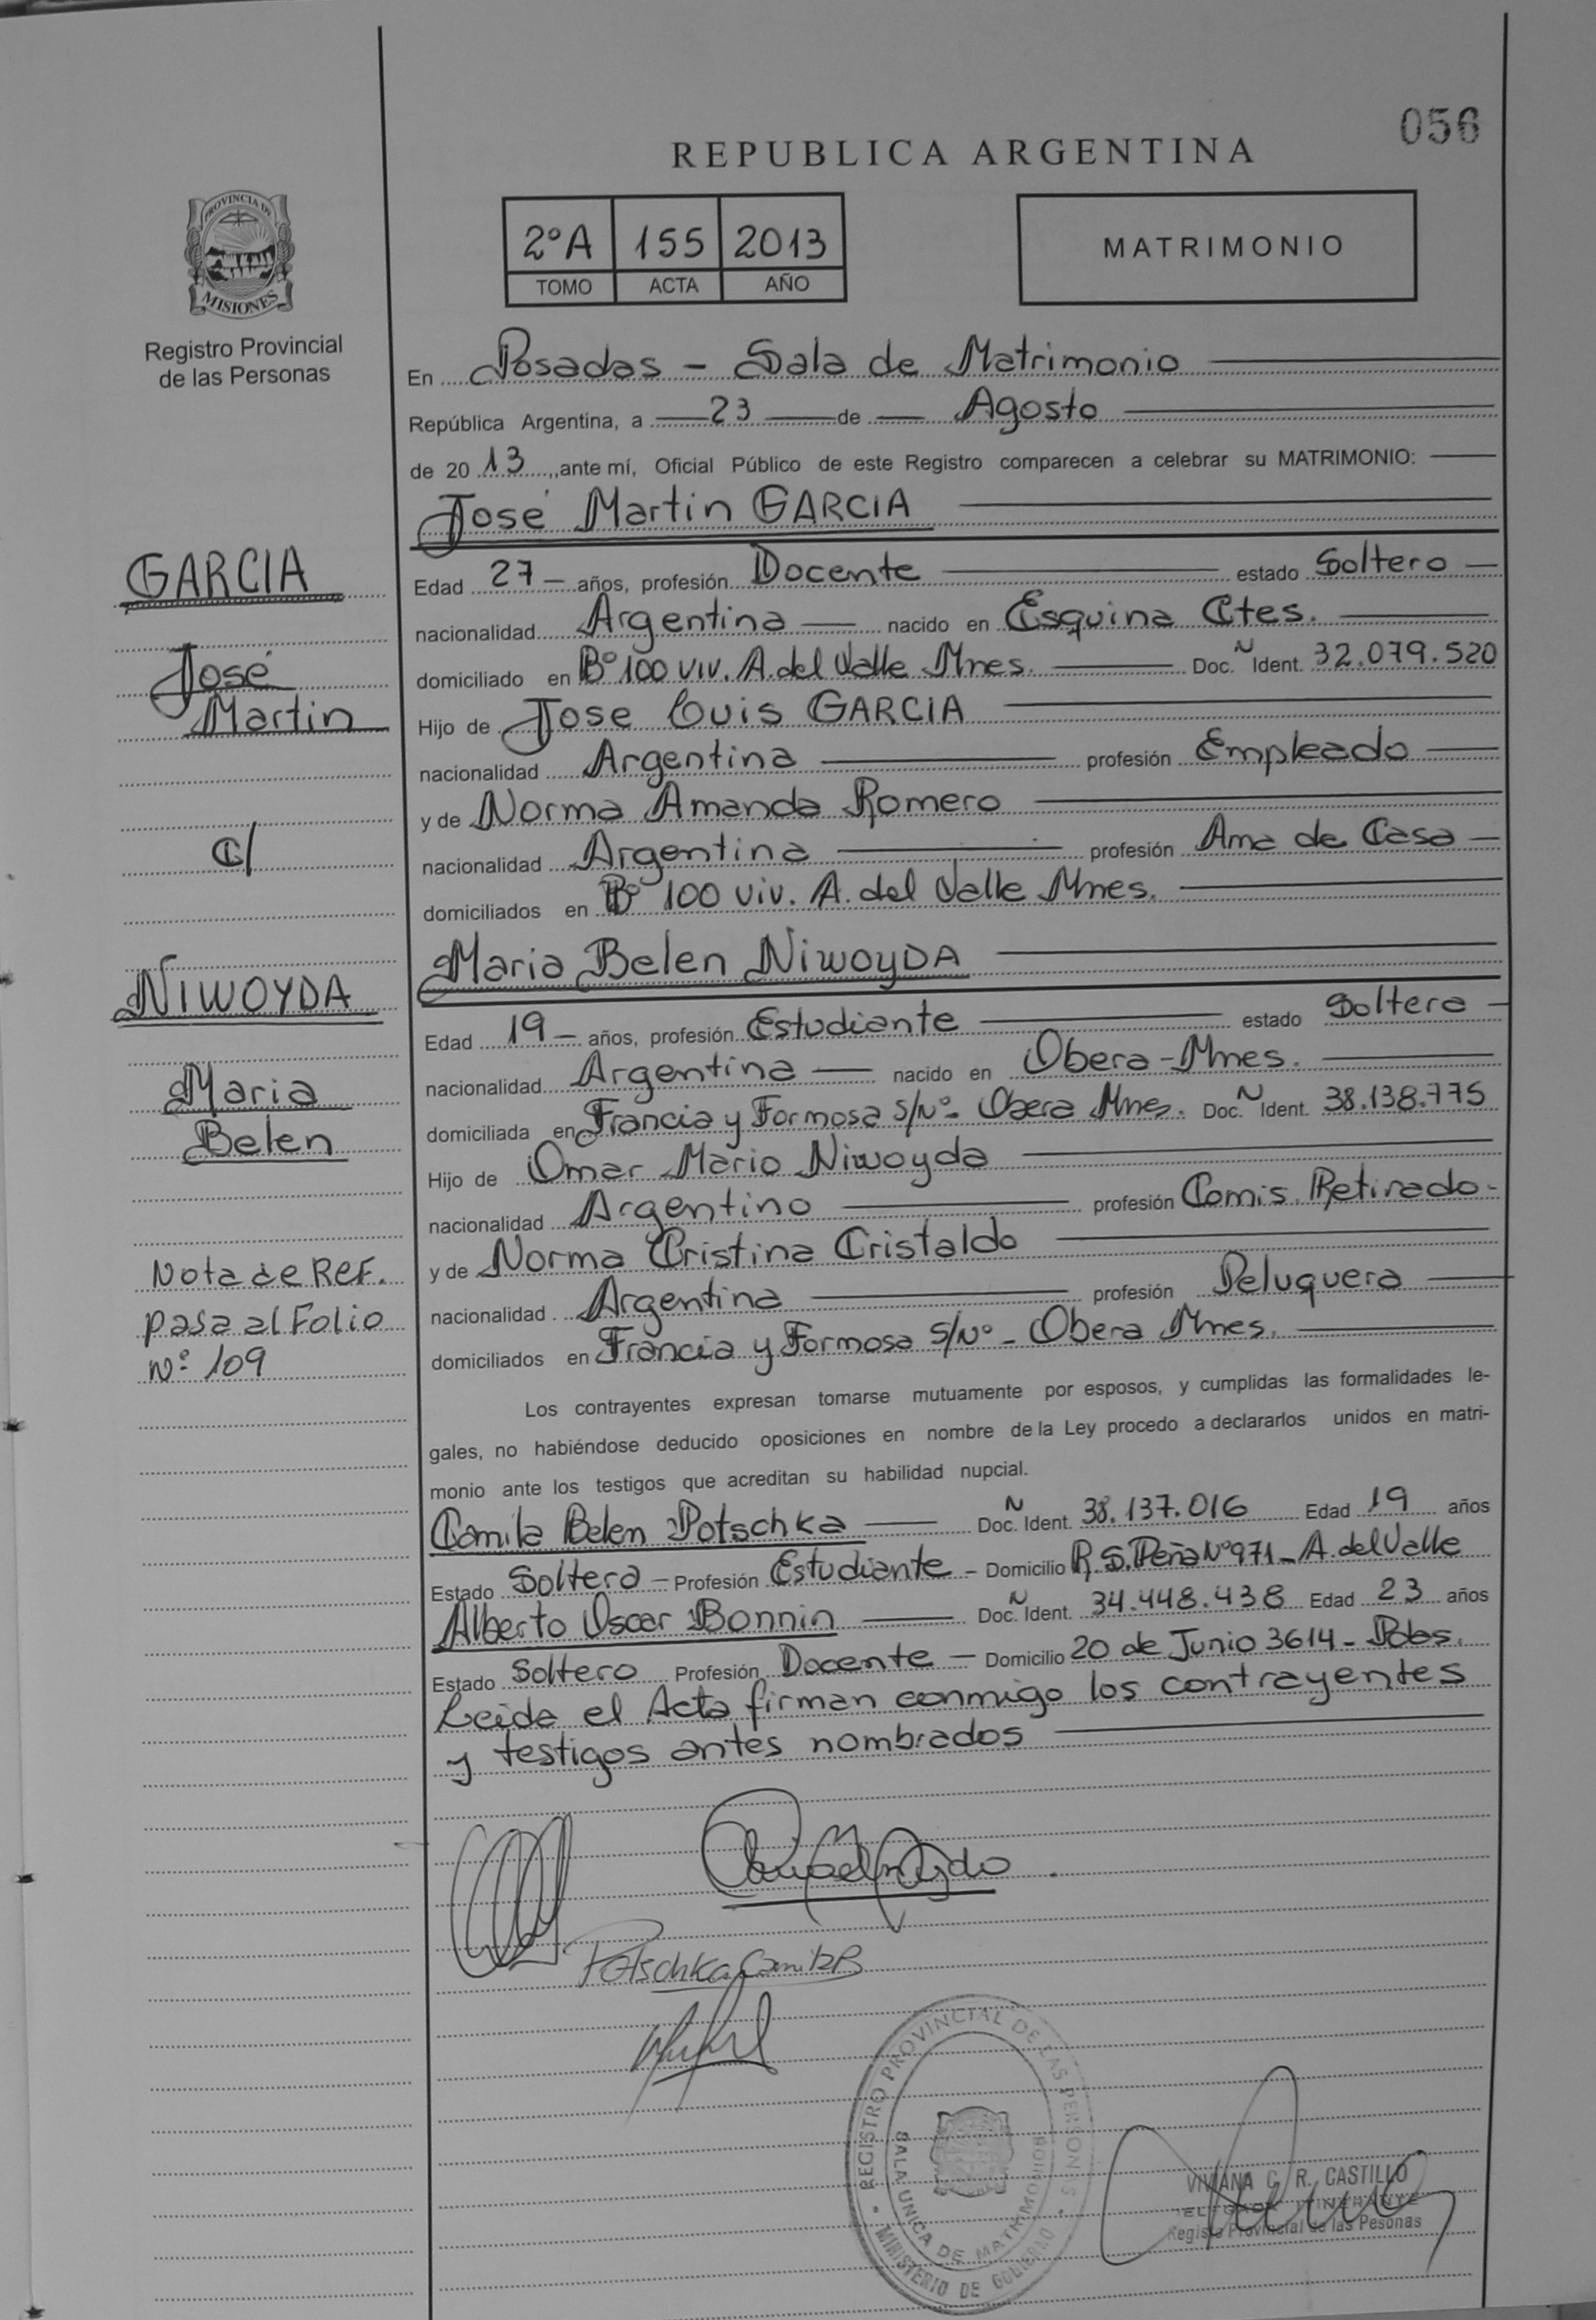 056
REPUBLICA ARGENTINA
PROVINCIA DE
MISIONES
2ºA 155 2013
TOMO ACTA AÑO
MATRIMONIO
Registro Provincial
de las Personas
En Posadas - Sala de Matrimonio
República Argentina, a 23 de Agosto
de 20 13, ante mí, Oficial Público de este Registro comparecen a celebrar su MATRIMONIO:
José Martin GARCIA
GARCIA
José
Martin
C/
NIWOYDA
Maria
Belen
Nota de Ref.
pasa al Folio
Nº 109
Edad 27 - años, profesión Docente estado Soltero
nacionalidad Argentina nacido en Esquina Ctes.
domiciliado en Bº 100 viv. A. del Valle Mnes. Doc. N Ident. 32.079.520
Hijo de Jose Luis GARCIA
nacionalidad Argentina profesión Empleado
y de Norma Amanda Romero
nacionalidad Argentina profesión Ama de Casa
domiciliados en Bº 100 viv. A. del Valle Mnes.
Maria Belen NiwoyDA
Edad 19 - años, profesión Estudiante estado Soltera
nacionalidad Argentina nacido en Obera - Mnes.
domiciliada en Francia y Formosa S/Nº - Obera Mnes. Doc. N Ident. 38.138.775
Hijo de Omar Mario Niwoyda
nacionalidad Argentino profesión Comis. Retirado -
y de Norma Cristina Cristaldo
nacionalidad Argentina profesión Peluquera
domiciliados en Francia y Formosa S/Nº - Obera Mnes.
Los contrayentes expresan tomarse mutuamente por esposos, y cumplidas las formalidades le-
gales, no habiéndose deducido oposiciones en nombre de la Ley procedo a declararlos unidos en matri-
monio ante los testigos que acreditan su habilidad nupcial.
Camila Belen Potschka Doc. N Ident. 38.137.016 Edad 19 años
Estado Soltera - Profesión Estudiante - Domicilio R. S. Peña Nº 971 - A. del Valle
Alberto Oscar Bonnin Doc. N Ident. 34.448.438 Edad 23 años
Estado Soltero Profesión Docente - Domicilio 20 de Junio 3614 - Pdas.
Leida el Acta firman conmigo los contrayentes
y testigos antes nombrados
Potschka Camila B
REGISTRO PROVINCIAL DE LAS PERSONAS
SALA UNICA DE MATRIMONIOS
MINISTERIO DE GOBIERNO
VIVIANA C. R. CASTILLO
Registro Provincial de las Pesonas